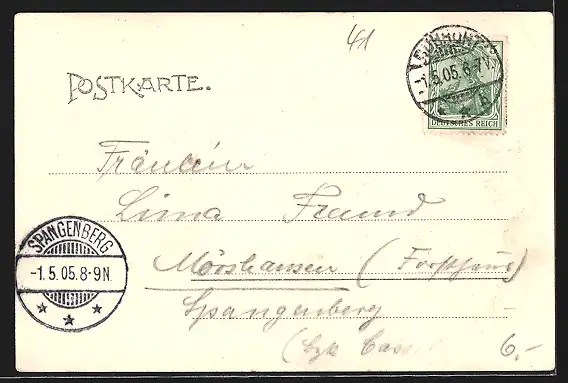 41
POSTKARTE.
1.5.05.6-7N.
DEUTSCHES REICH
Fräulein
Lina Freund
Mörshausen (Forsthaus)
Spangenberg
(Bzk Cassel
SPANGENBERG
-1.5.05.8-9N.
6.-